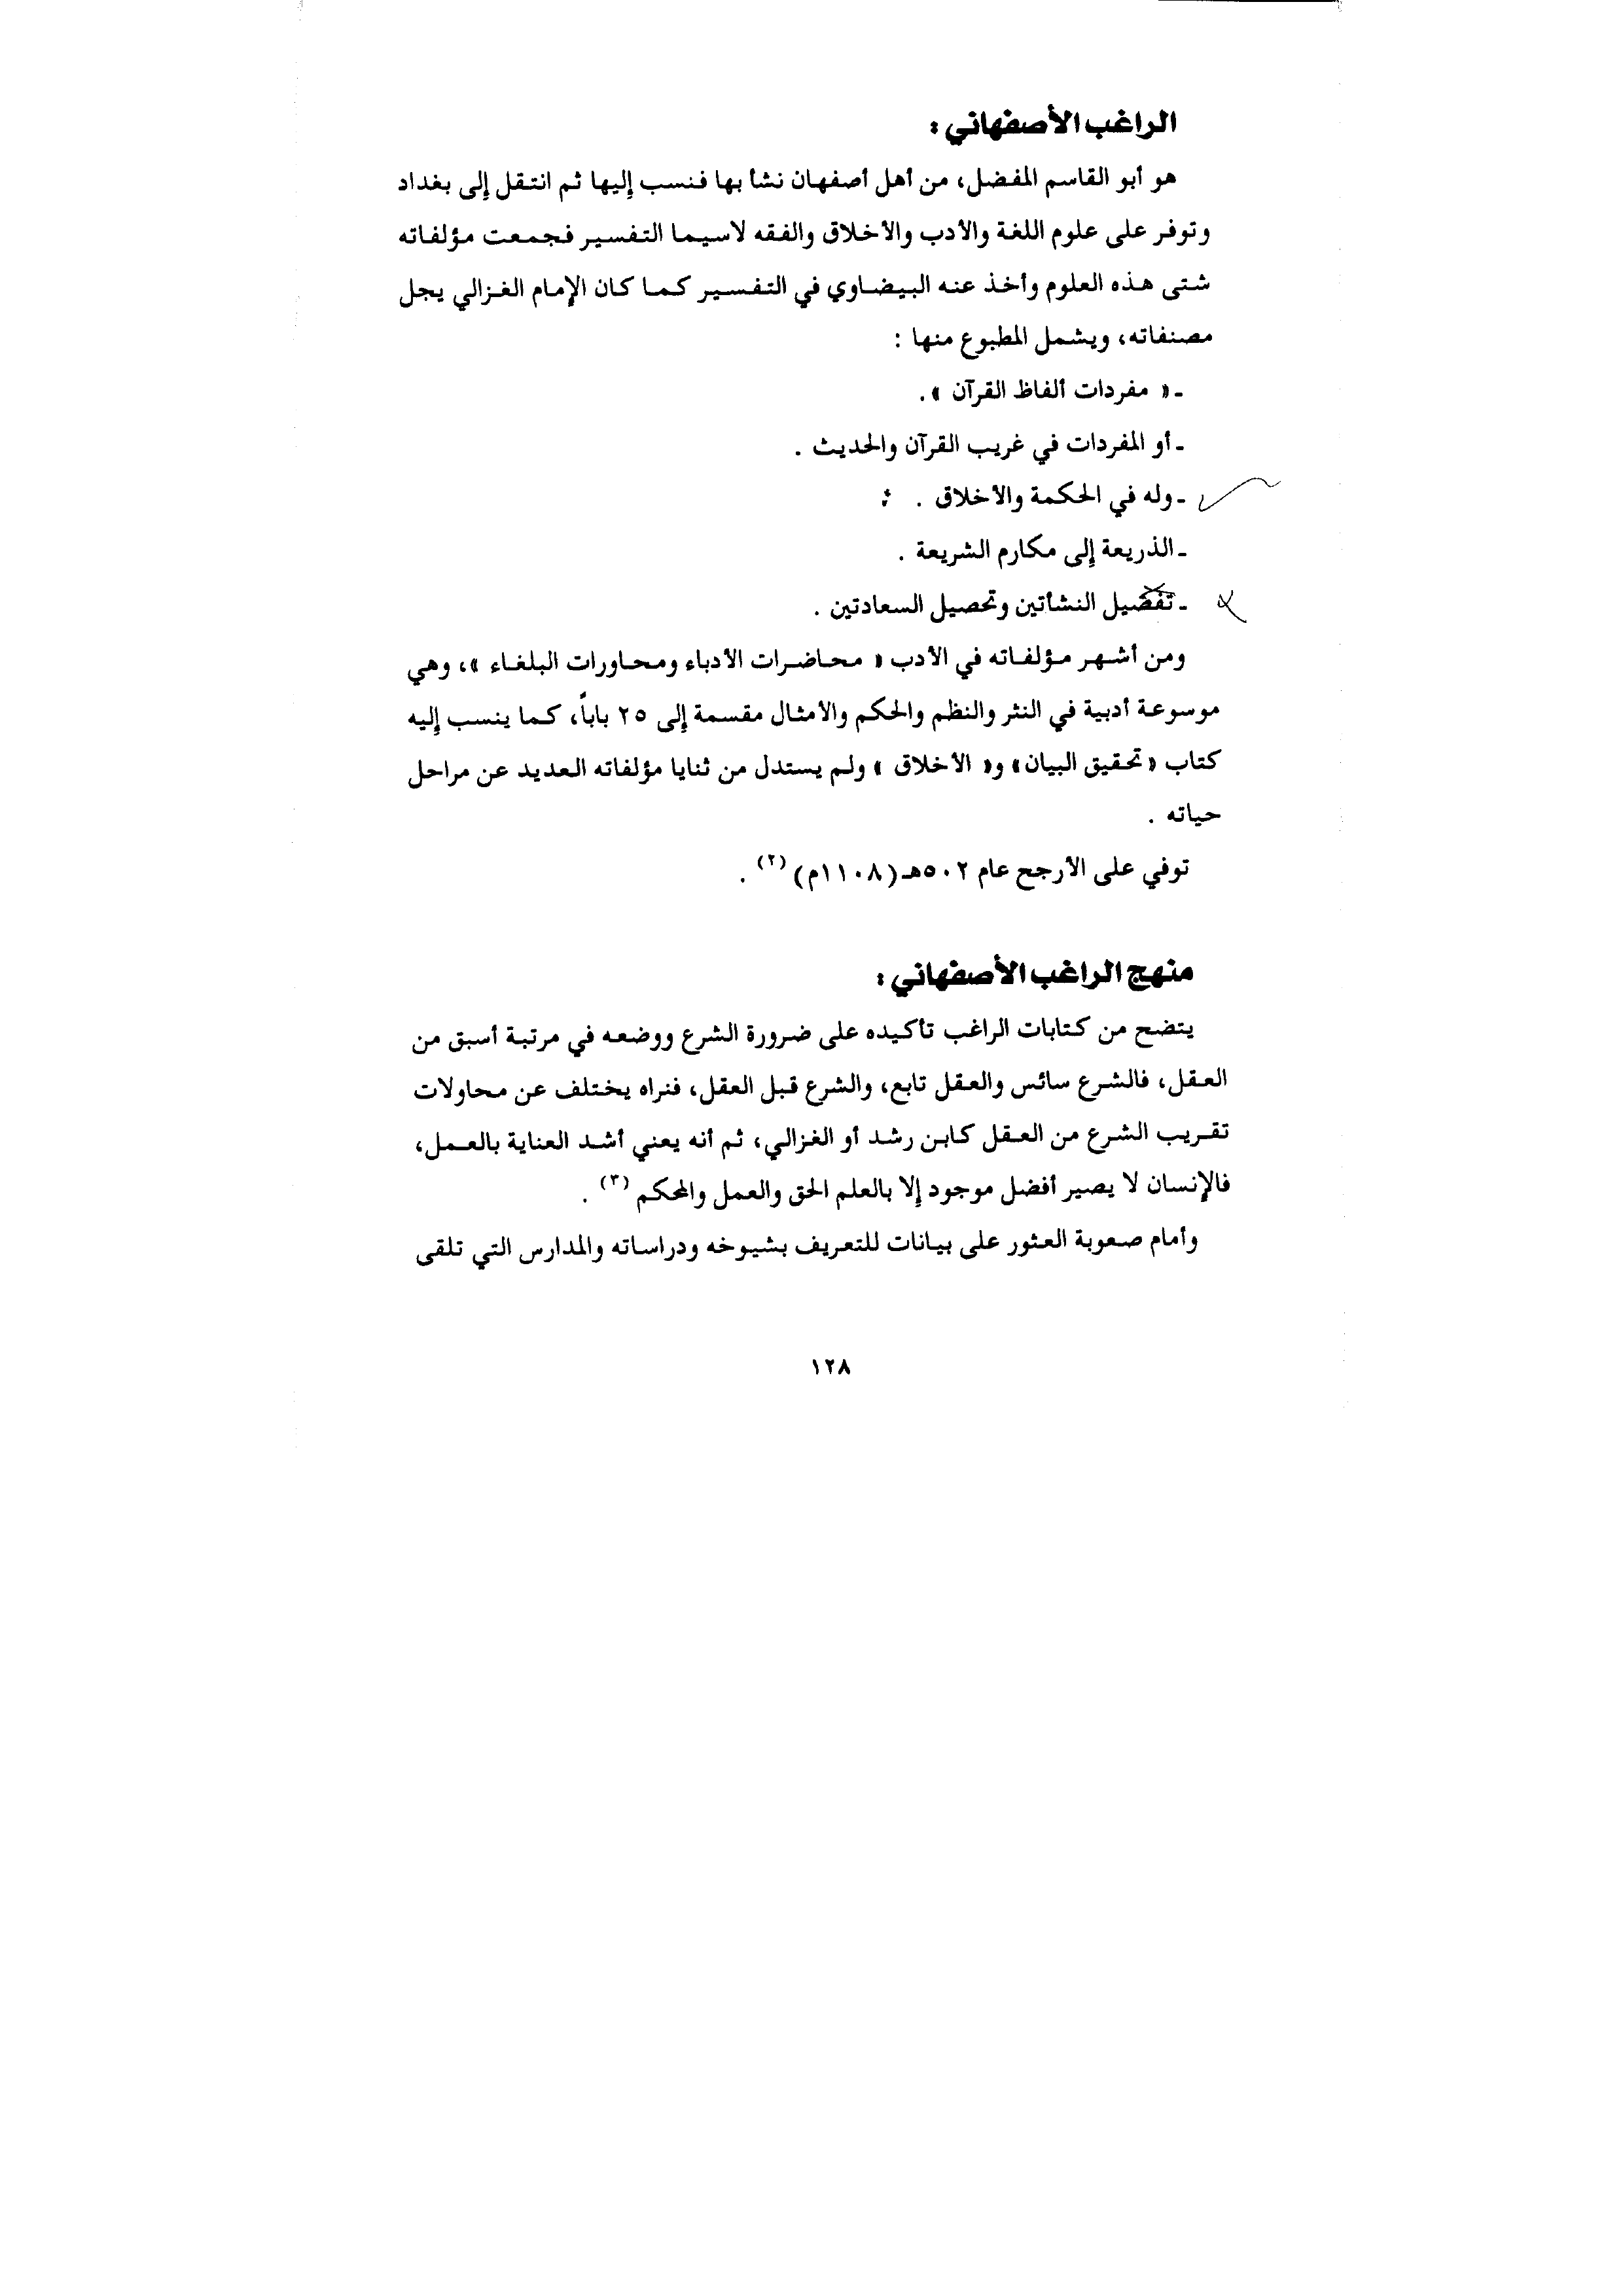 الراغب الأصفهاني :
هو أبو القاسم المفضل، من أهل أصفهان نشأ بها فنسب إليها ثم انتقل إلى بغداد
وتوفر على علوم اللغة والأدب والأخلاق والفقه لاسيما التفسير فجمعت مؤلفاته
شتى هذه العلوم وأخذ عنه البيضاوي في التفسير كما كان الإمام الغزالي يجل
مصنفاته، ويشمل المطبوع منها :
ـ « مفردات ألفاظ القرآن » .
ـ أو المفردات في غريب القرآن والحديث .
ـ وله في الحكمة والأخلاق . :
ـ الذريعة إلى مكارم الشريعة .
ـ تفضيل النشأتين وتحصيل السعادتين .
ومن أشهر مؤلفاته في الأدب « محاضرات الأدباء ومحاورات البلغاء »، وهي
موسوعة أدبية في النثر والنظم والحكم والأمثال مقسمة إلى ٢٥ باباً، كما ينسب إليه
كتاب « تحقيق البيان» و« الأخلاق » ولم يستدل من ثنايا مؤلفاته العديد عن مراحل
حياته .
توفي على الأرجح عام ٥٠٢هـ (١١٠٨م) (٢) .
منهج الراغب الأصفهاني :
يتضح من كتابات الراغب تأكيده على ضرورة الشرع ووضعه في مرتبة أسبق من
العقل، فالشرع سائس والعقل تابع، والشرع قبل العقل، فنراه يختلف عن محاولات
تقريب الشرع من العقل كابن رشد أو الغزالي، ثم أنه يعني أشد العناية بالعمل،
فالإنسان لا يصير أفضل موجود إلا بالعلم الحق والعمل والمحكم (٣) .
وأمام صعوبة العثور على بيانات للتعريف بشيوخه ودراساته والمدارس التي تلقى
١٢٨